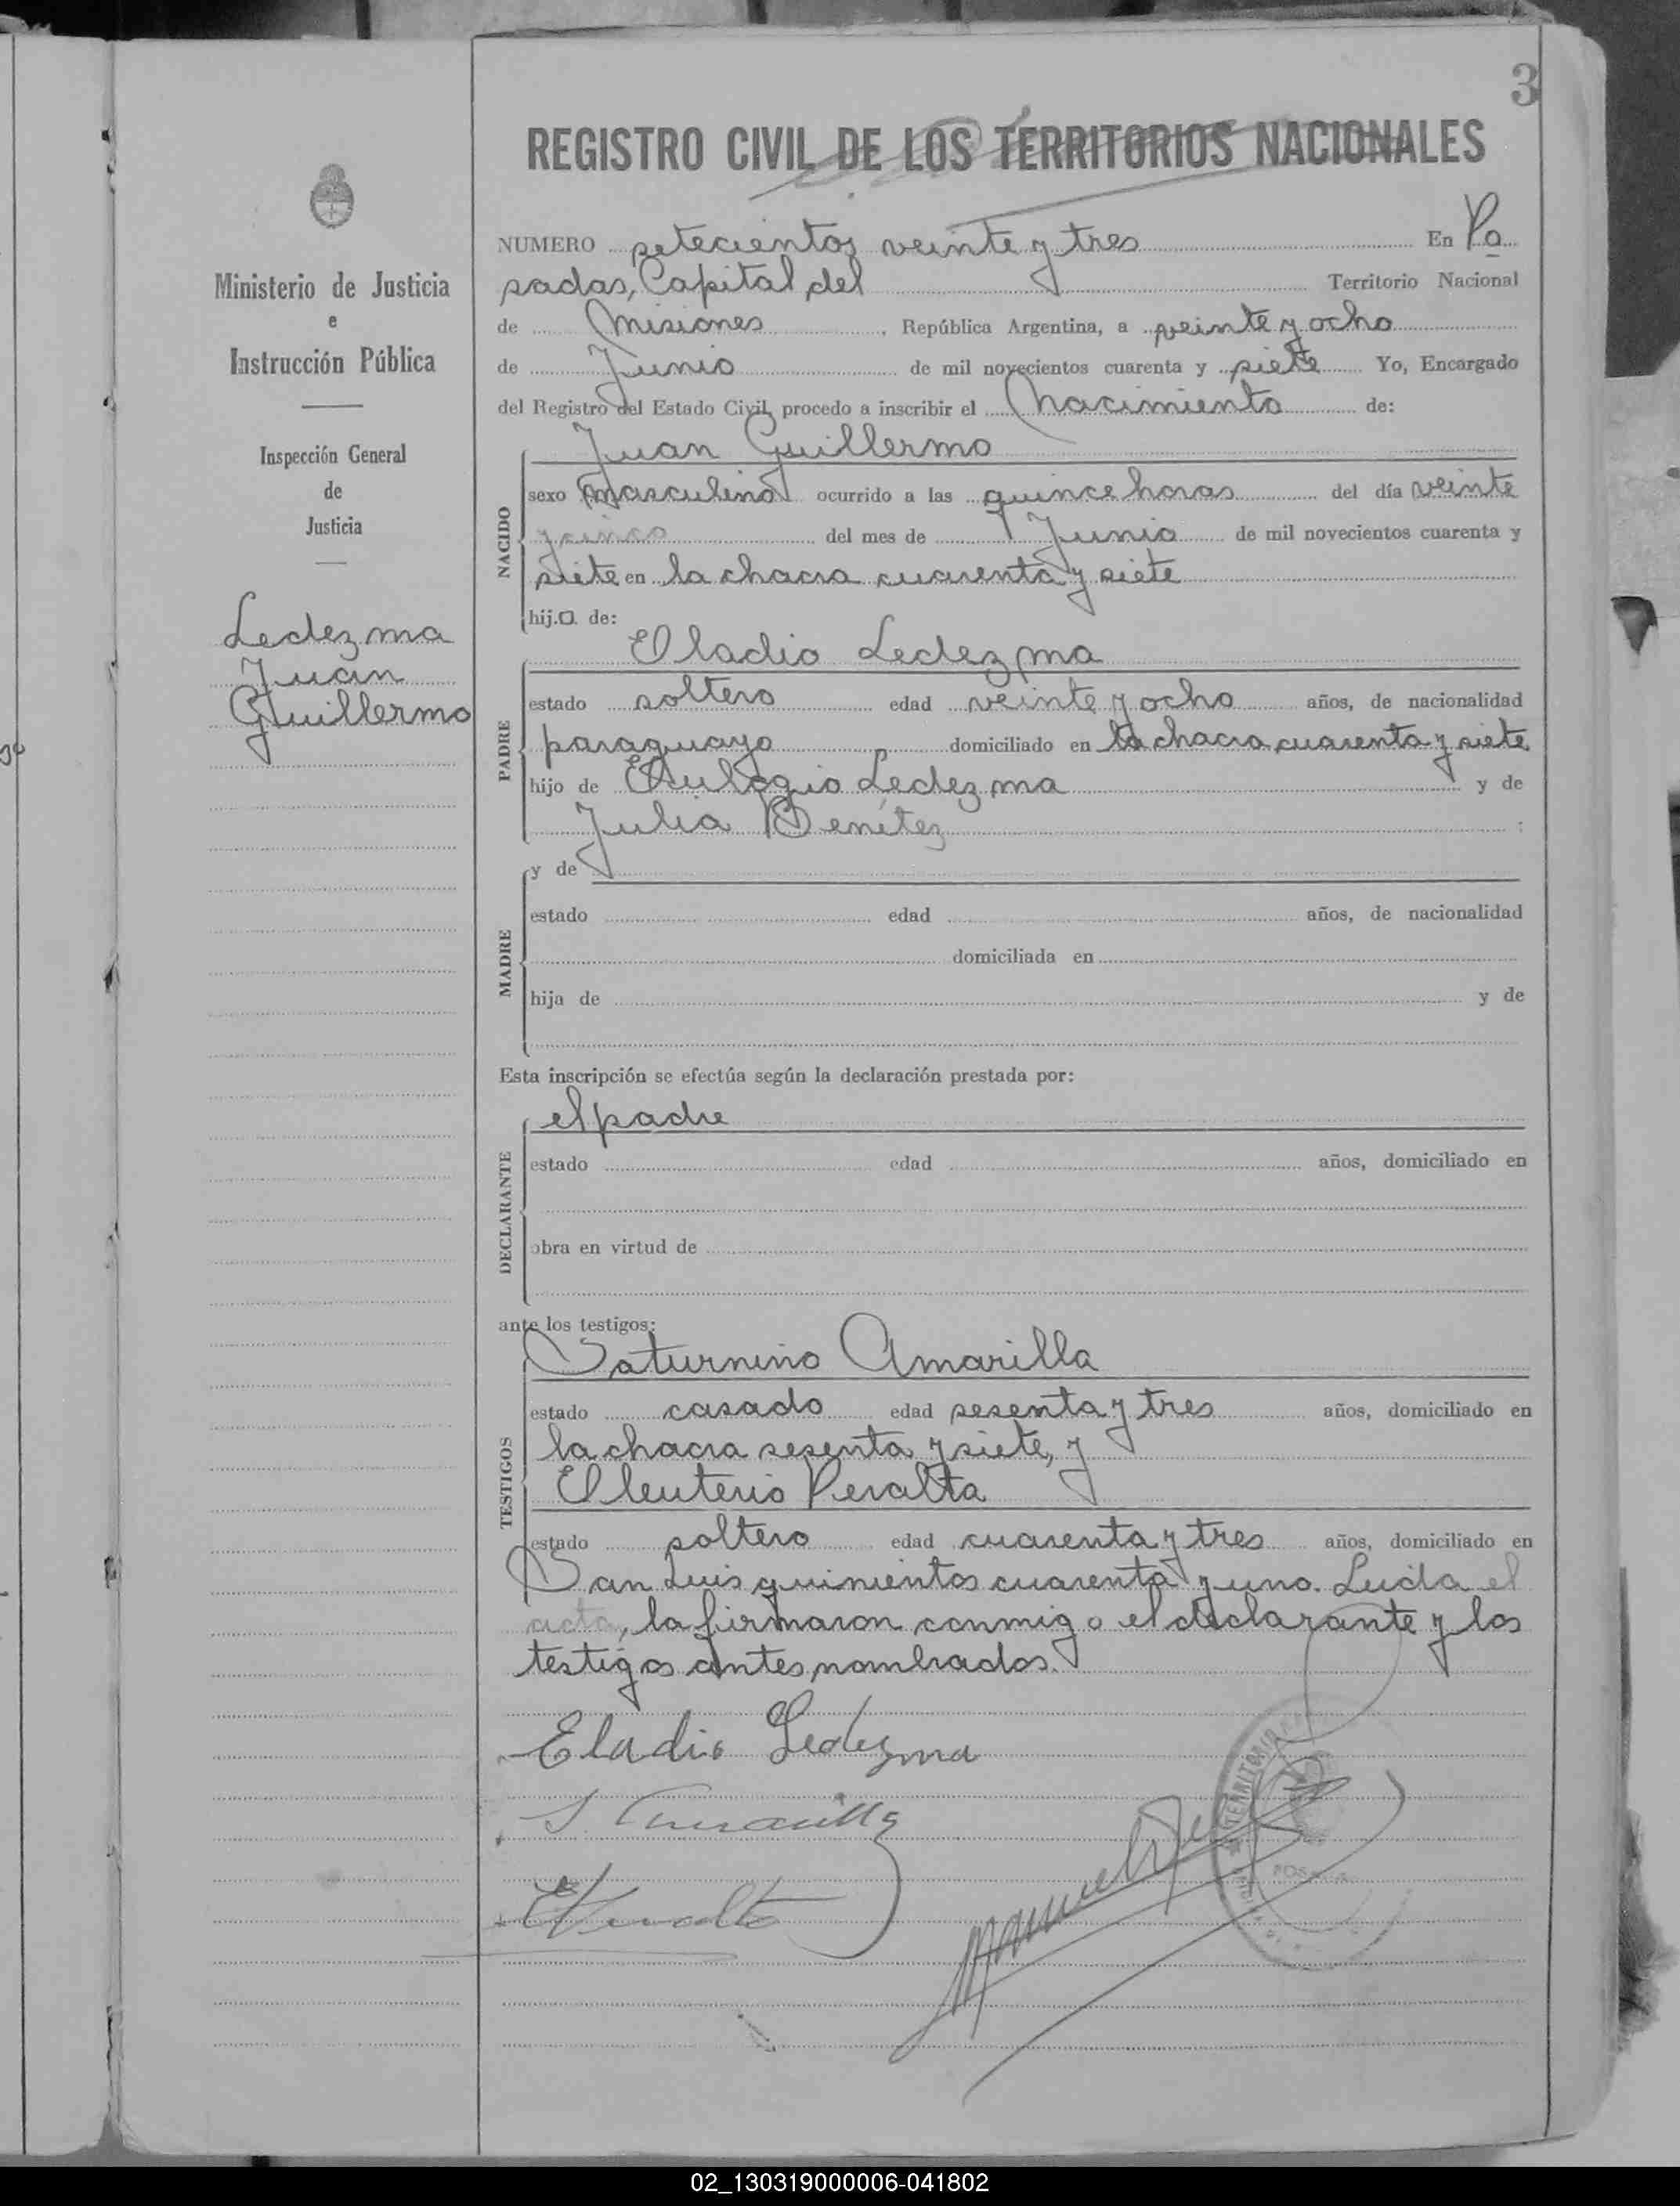 3
REGISTRO CIVIL DE LOS TERRITORIOS NACIONALES
NUMERO setecientos veinte y tres En Po
sadas, Capital del Territorio Nacional
de Misiones, República Argentina, a veinte y ocho
de Junio de mil novecientos cuarenta y siete Yo, Encargado
del Registro del Estado Civil, procedo a inscribir el Nacimiento de:
Juan Guillermo
NACIDO
sexo masculino ocurrido a las quince horas del día veinte
y cinco del mes de Junio de mil novecientos cuarenta y
siete en la chacra cuarenta y siete
hij.o. de:
Eladio Ledezma
PADRE
estado soltero edad veinte y ocho años, de nacionalidad
paraguayo domiciliado en la chacra cuarenta y siete
hijo de Eulogio Ledezma y de
Julia Benítez ;
y de
MADRE
estado edad años, de nacionalidad
domiciliada en
hija de y de
Esta inscripción se efectúa según la declaración prestada por:
el padre
DECLARANTE
estado edad años, domiciliado en
obra en virtud de
ante los testigos:
Saturnino Amarilla
TESTIGOS
estado casado edad sesenta y tres años, domiciliado en
la chacra sesenta y siete, y
Eleuterio Peralta
estado soltero edad cuarenta y tres años, domiciliado en
San Luis quinientos cuarenta y uno. Leida el
acta, la firmaron conmigo el declarante y los
testigos antes nombrados.
Eladio Ledezma
S. Amarilla
E Peralta
Manuel
TERRITORIO
Ministerio de Justicia
e
Instrucción Pública
Inspección General
de
Justicia
Ledezma
Juan
Guillermo
02_130319000006-041802